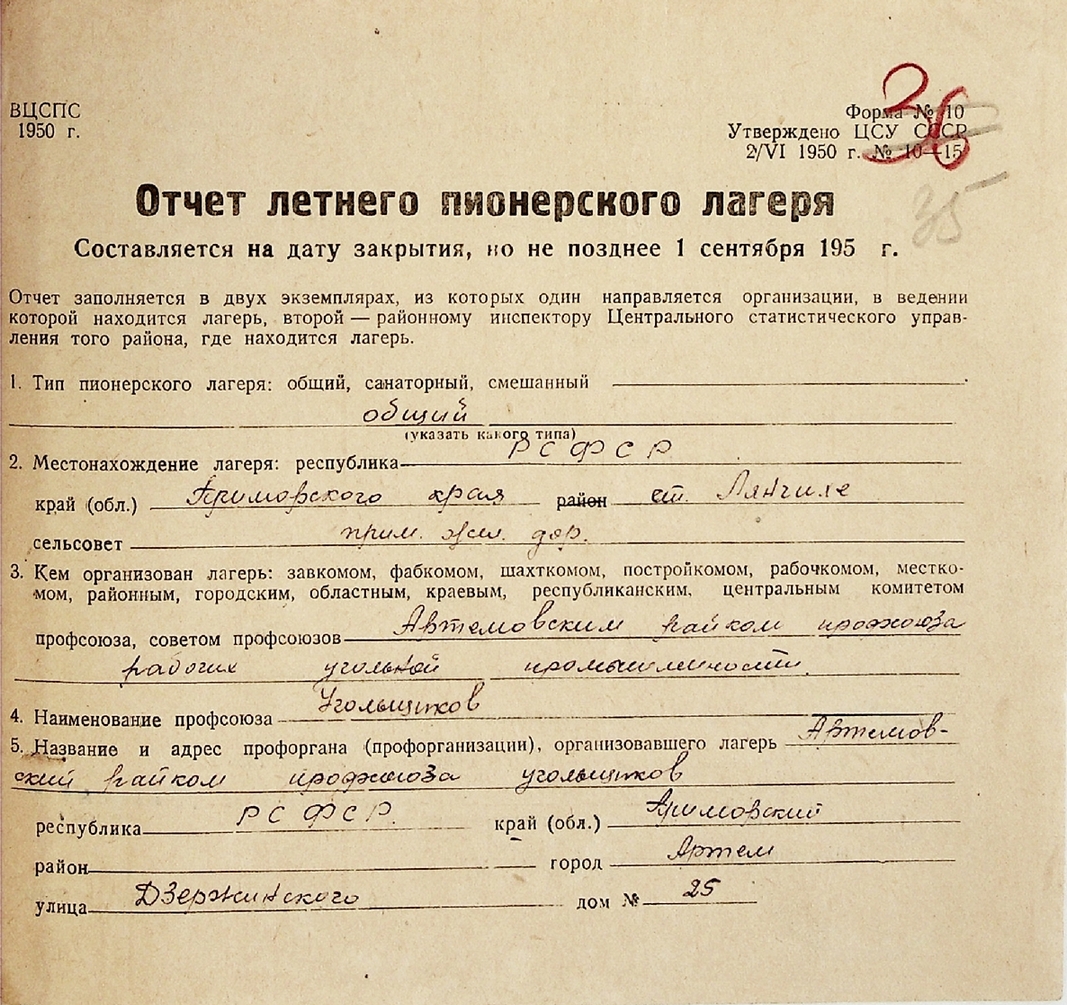 ВЦСПС
1950 г.
Форма № 10
Утверждено ЦСУ СССР
2/VI 1950 г. № 10—15
36
35
Отчет летнего пионерского лагеря
Составляется на дату закрытия, но не позднее 1 сентября 195 г.
Отчет заполняется в двух экземплярах, из которых один направляется организации, в ведении
которой находится лагерь, второй — районному инспектору Центрального статистического управ-
ления того района, где находится лагерь.
1. Тип пионерского лагеря: общий, санаторный, смешанный
общий
(указать какого типа)
2. Местонахождение лагеря: республика РСФСР
край (обл.) Приморского края район ст. Лянчихе
сельсовет прим. жел. дор.
3. Кем организован лагерь: завкомом, фабкомом, шахткомом, постройкомом, рабочкомом, местко-
мом, районным, городским, областным, краевым, республиканским, центральным комитетом
профсоюза, советом профсоюзов Артемовским райком профсоюза
рабочих угольной промышленности
4. Наименование профсоюза Угольщиков
5. Название и адрес профоргана (профорганизации), организовавшего лагерь Артемов-
ский райком профсоюза угольщиков
республика РСФСР. край (обл.) Приморский
район город Артем
улица Дзержинского дом № 25